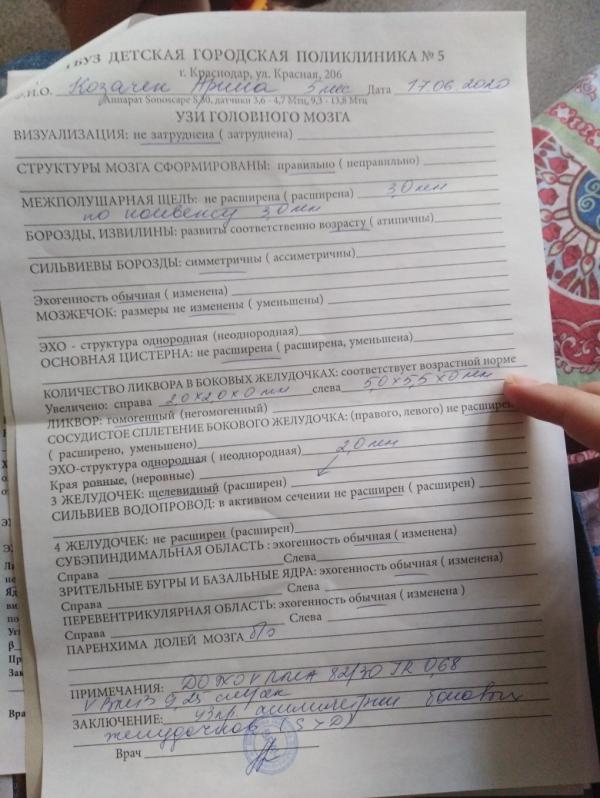 БУЗ ДЕТСКАЯ ГОРОДСКАЯ ПОЛИКЛИНИКА № 5
г. Краснодар, ул. Красная, 206
Ф.И.О. Козачек Арина 5 мес Дата 17.06.2020
Аппарат Sonoscape S 30, датчики 3,6 - 4,7 Мгц, 9,3 - 13,8 Мгц
УЗИ ГОЛОВНОГО МОЗГА
ВИЗУАЛИЗАЦИЯ: не затруднена ( затруднена)
СТРУКТУРЫ МОЗГА СФОРМИРОВАНЫ: правильно ( неправильно)
МЕЖПОЛУШАРНАЯ ЩЕЛЬ: не расширена ( расширена) 3,0 мм
по конвексу 3,0 мм
БОРОЗДЫ, ИЗВИЛИНЫ: развиты соответственно возрасту ( атипичны)
СИЛЬВИЕВЫ БОРОЗДЫ: симметричны ( ассиметричны)
Эхогенность обычная ( изменена)
МОЗЖЕЧОК: размеры не изменены ( уменьшены)
ЭХО - структура однородная (неоднородная)
ОСНОВНАЯ ЦИСТЕРНА: не расширена ( расширена, уменьшена)
КОЛИЧЕСТВО ЛИКВОРА В БОКОВЫХ ЖЕЛУДОЧКАХ: соответствует возрастной норме
Увеличено: справа 2,0 х 2,0 х 0 мм слева 5,0 х 5,5 х 0 мм
ЛИКВОР: гомогенный (негомогенный)
СОСУДИСТОЕ СПЛЕТЕНИЕ БОКОВОГО ЖЕЛУДОЧКА: (правого, левого) не расширен
( расширено, уменьшено)
ЭХО-структура однородная ( неоднородная) 2,0 мм
Края ровные, (неровные)
3 ЖЕЛУДОЧЕК: щелевидный (расширен)
СИЛЬВИЕВ ВОДОПРОВОД: в активном сечении не расширен ( расширен)
4 ЖЕЛУДОЧЕК: не расширен (расширен)
СУБЭПИНДИМАЛЬНАЯ ОБЛАСТЬ : эхогенность обычная ( изменена)
Справа Слева
ЗРИТЕЛЬНЫЕ БУГРЫ И БАЗАЛЬНЫЕ ЯДРА: эхогенность обычная ( изменена)
Справа Слева
ПЕРЕВЕНТРИКУЛЯРНАЯ ОБЛАСТЬ: эхогенность обычная ( изменена )
Справа Слева
ПАРЕНХИМА ДОЛЕЙ МОЗГА б/о
ПРИМЕЧАНИЯ: ПМА 82/30 IR 0,68
см/сек
ЗАКЛЮЧЕНИЕ: УЗ пр. асимметрии боковых
желудочков (S > D)
Врач